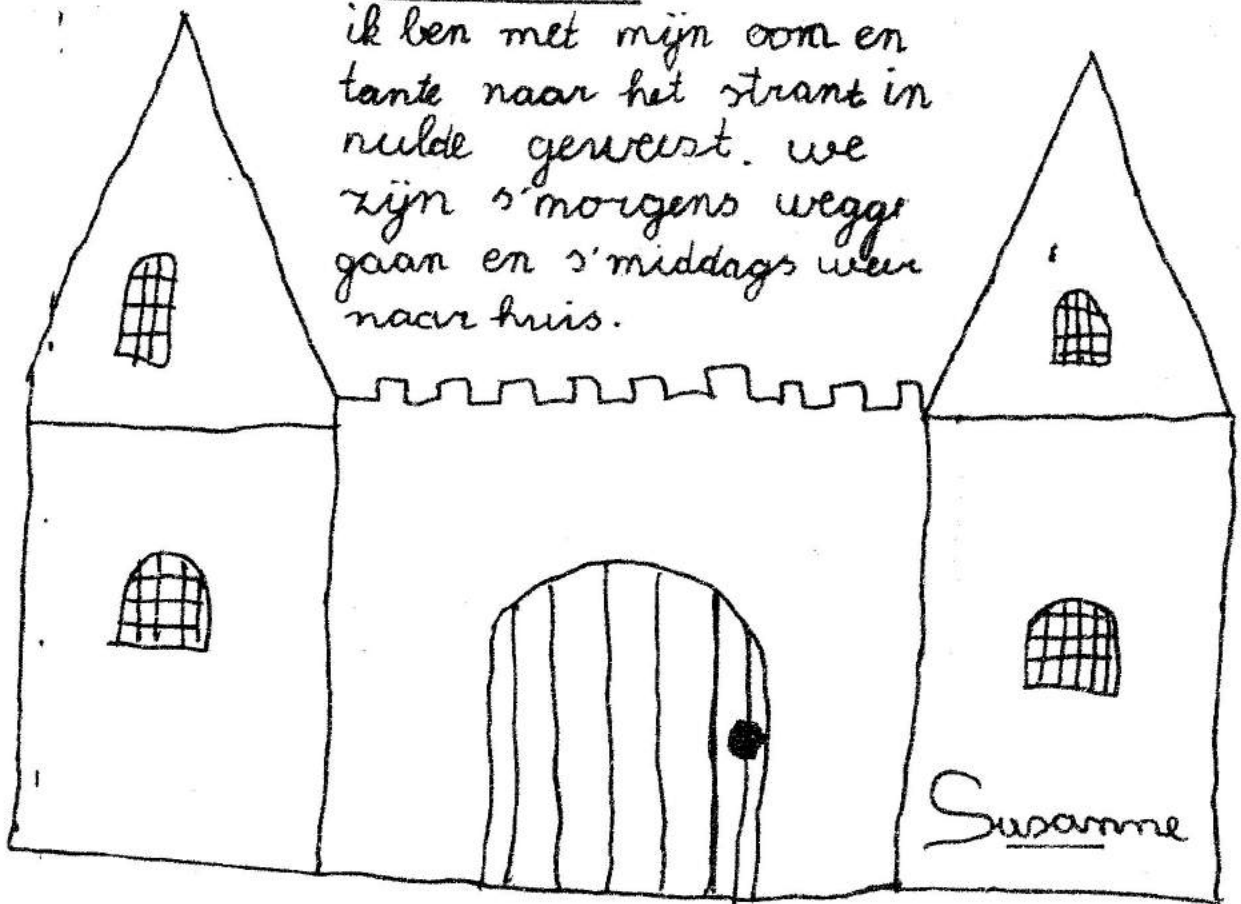 ik ben met mijn oom en
tante naar het strant in
nulde geweest. we
zijn s'morgens wegge
gaan en s'middags weer
naar huis.
Susanne